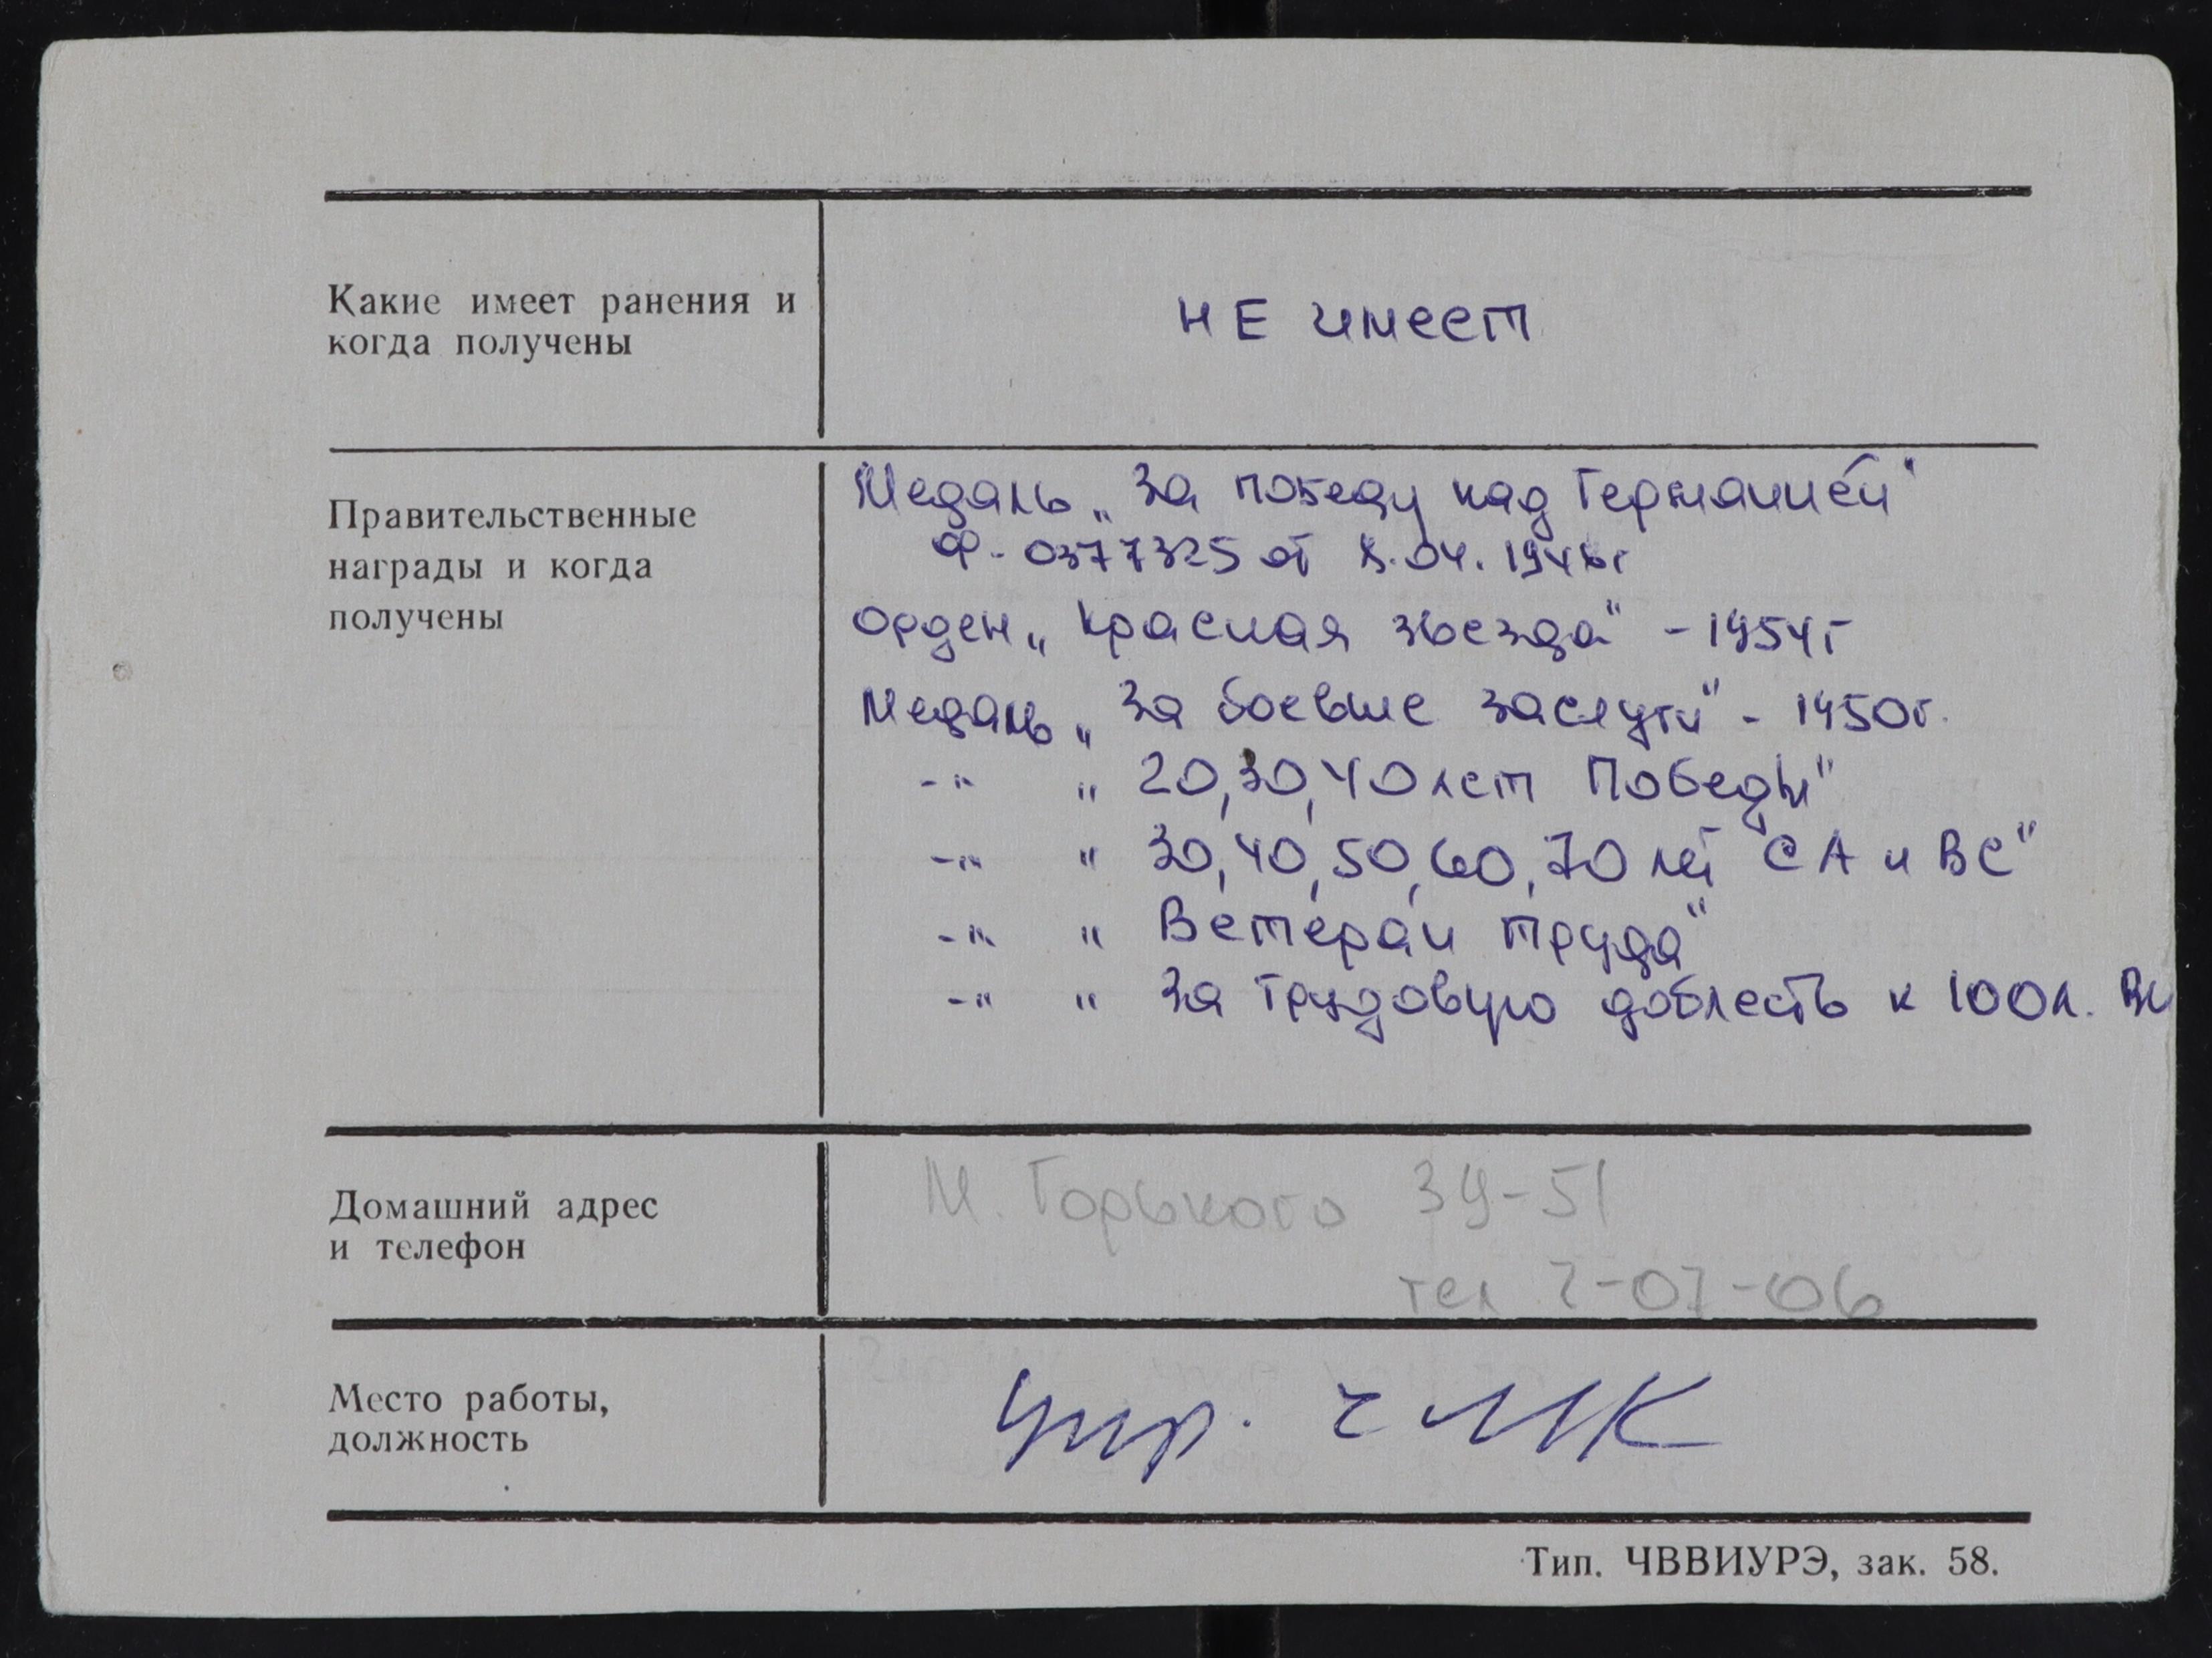 Какие имеет ранения и
когда получены
не имеет
Правительственные
награды и когда
получены
Медаль „За победу над Германией"
Ф-0377325 от 8.04.1946г
Орден „Красная звезда" - 1954г
Медаль „За боевые заслуги" - 1950г.
-"- " 20,30,40 лет Победы"
-"- " 30,40,50,60,70 лет СА и ВС"
-"- " Ветеран труда"
-"- " За трудовую доблесть к 100л.
Домашний адрес
и телефон
М. Горького 39-51
тел 2-07-06
Место работы,
должность
Упр. ЧМК
Тип. ЧВВИУРЭ, зак. 58.